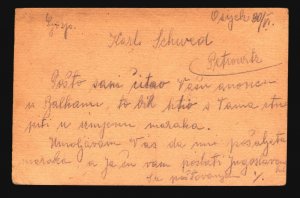 Osijek 30/VI.
Gosp.
Karl Schwed
Petrovark
Pošto sam čitao Vašu anoncu
u Balkanu, to bih htio s Vama stu
piti u izmjenu maraka.
Umoljavam Vas da mi pošaljete
maraka a ja ću vam poslati jugoslaven
Sa poštovanjem